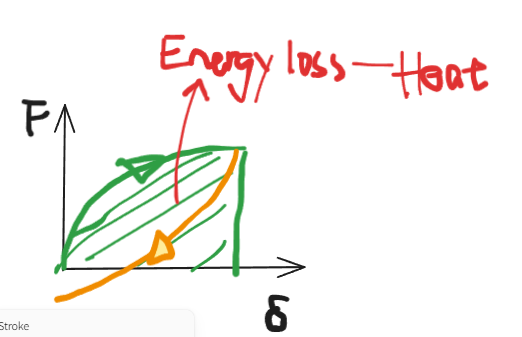 Energy loss — Heat
F
δ
Stroke